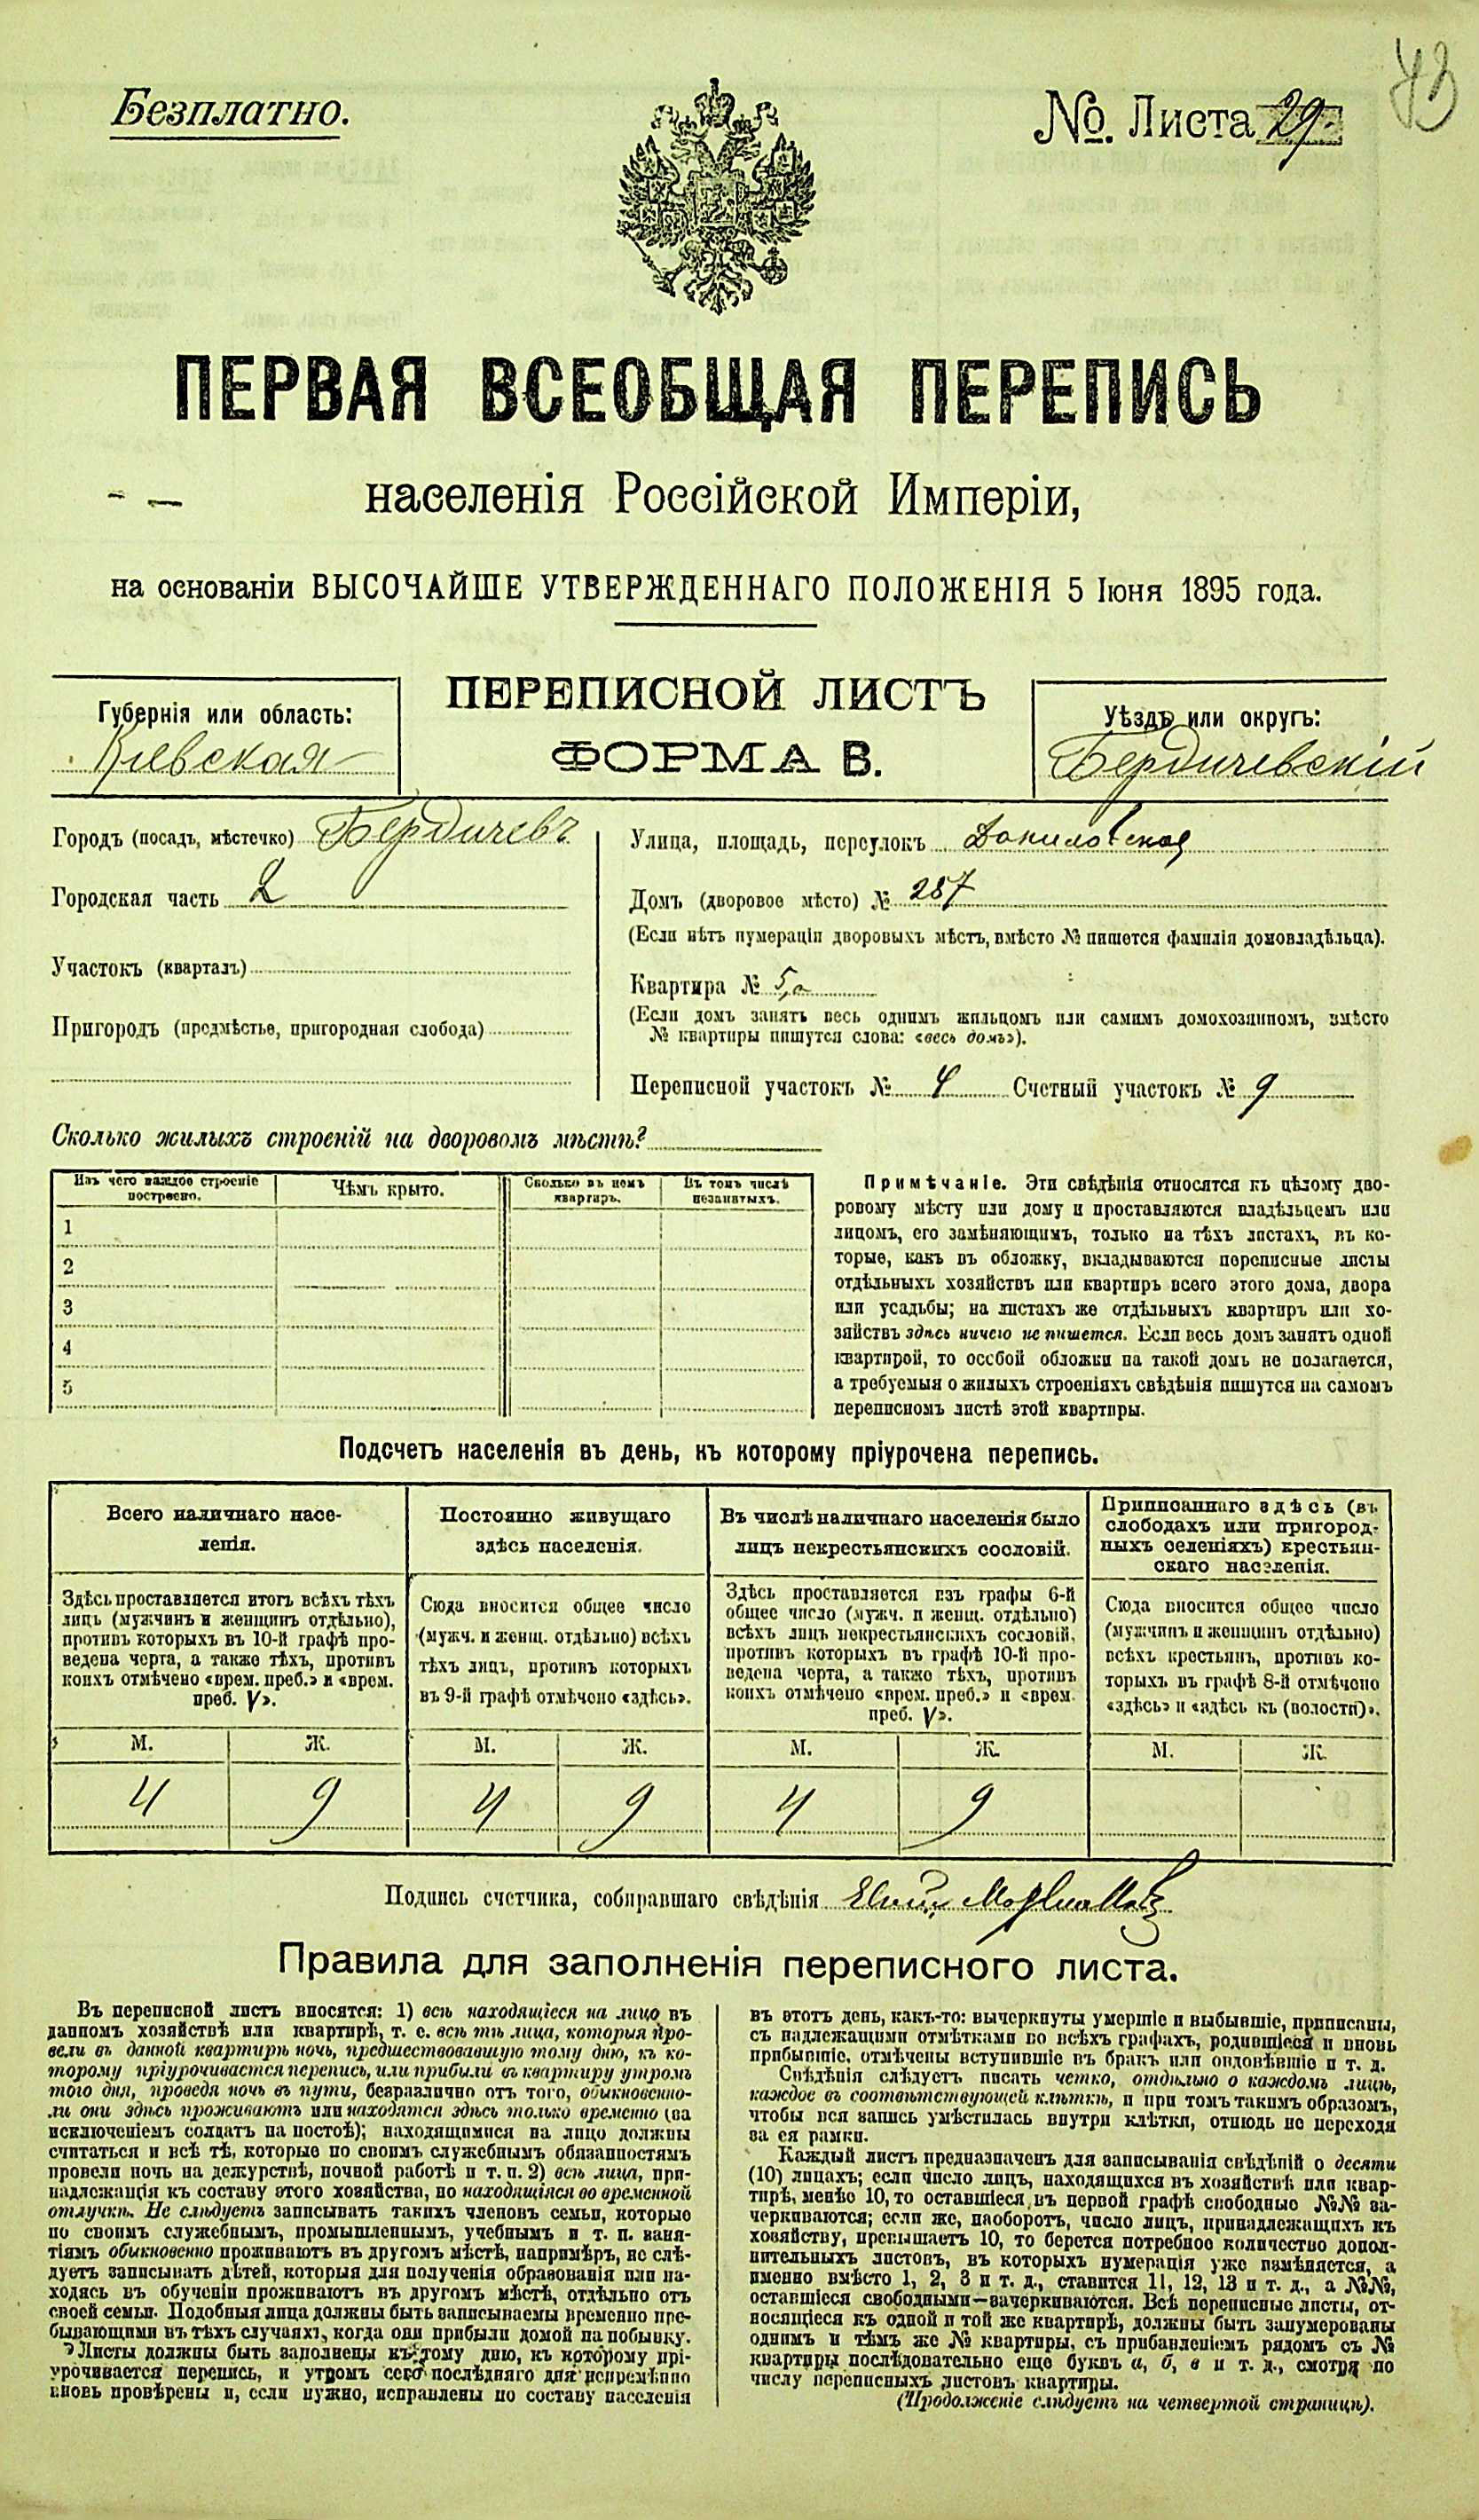 43
Безплатно.
№. Листа 29.
ПЕРВАЯ ВСЕОБЩАЯ ПЕРЕПИСЬ
населенія Россійской Имперіи,
на основаніи ВЫСОЧАЙШЕ УТВЕРЖДЕННАГО ПОЛОЖЕНІЯ 5 Іюня 1895 года.
ПЕРЕПИСНОЙ ЛИСТЪ
ФОРМА В.
Губернія или область:
Кіевская
Уѣздъ или округъ:
Бердичевскій
Городъ (посадъ, мѣстечко) Бердичевъ
Городская часть 2
Участокъ (кварталъ)
Пригородъ (предмѣстье, пригородная слобода)
Улица, площадь, переулокъ Даниловская
Домъ (дворовое мѣсто) № 287
(Если нѣтъ нумераціи дворовыхъ мѣстъ, вмѣсто № пишется фамилія домовладѣльца).
Квартира № 5,а
(Если домъ занятъ весь однимъ жильцомъ или самимъ домохозяиномъ, вмѣсто
№ квартиры пишутся слова: «весь домъ»).
Переписной участокъ № 4 Счетный участокъ № 9
Сколько жилыхъ строеній на дворовомъ мѣстѣ?
Изъ чего каждое строеніе
построено.
Чѣмъ крыто.
Сколько въ немъ
квартиръ.
Въ томъ числѣ
незанятыхъ.
1
2
3
4
5
Примѣчаніе. Эти свѣдѣнія относятся къ цѣлому дво-
ровому мѣсту или дому и проставляются владѣльцемъ или
лицомъ, его замѣняющимъ, только на тѣхъ листахъ, въ ко-
торые, какъ въ обложку, вкладываются переписные листы
отдѣльныхъ хозяйствъ или квартиръ всего этого дома, двора
или усадьбы; на листахъ же отдѣльныхъ квартиръ или хо-
зяйствъ здѣсь ничего не пишется. Если весь домъ занятъ одной
квартирой, то особой обложки на такой домъ не полагается,
а требуемыя о жилыхъ строеніяхъ свѣдѣнія пишутся на самомъ
переписномъ листѣ этой квартиры.
Подсчетъ населенія въ день, къ которому пріурочена перепись.
Всего наличнаго насе-
ленія.
Здѣсь проставляется итогъ всѣхъ тѣхъ
лицъ (мужчинъ и женщинъ отдѣльно),
противъ которыхъ въ 10-й графѣ про-
ведена черта, а также тѣхъ, противъ
коихъ отмѣчено «врем. преб.» и «врем.
преб. V».
Постоянно живущаго
здѣсь населенія.
Сюда вносится общее число
(мужч. и женщ. отдѣльно) всѣхъ
тѣхъ лицъ, противъ которыхъ
въ 9-й графѣ отмѣчено «здѣсь».
Въ числѣ наличнаго населенія было
лицъ некрестьянскихъ сословій.
Здѣсь проставляется изъ графы 6-й
общее число (мужч. и женщ. отдѣльно)
всѣхъ лицъ некрестьянскихъ сословій,
противъ которыхъ въ графѣ 10-й про-
ведена черта, а также тѣхъ, противъ
коихъ отмѣчено «врем. преб.» и «врем.
преб. V».
Приписаннаго здѣсь (въ
слободахъ или пригород-
ныхъ селеніяхъ) крестьян-
скаго населенія.
Сюда вносится общее число
(мужчинъ и женщинъ отдѣльно)
всѣхъ крестьянъ, противъ ко-
торыхъ въ графѣ 8-й отмѣчено
«здѣсь» и «здѣсь къ (волости)».
М. Ж. М. Ж. М. Ж. М. Ж.
4 9 4 9 4 9
Подпись счетчика, собиравшаго свѣдѣнія
Правила для заполненія переписного листа.
Въ переписной листъ вносятся: 1) всѣ находящіеся на лицо въ
данномъ хозяйствѣ или квартирѣ, т. е. всѣ тѣ лица, которыя про-
вели въ данной квартирѣ ночь, предшествовавшую тому дню, къ ко-
торому пріурочивается перепись, или прибыли въ квартиру утромъ
того дня, проведя ночь въ пути, безразлично отъ того, обыкновенно-
ли они здѣсь проживаютъ или находятся здѣсь только временно (за
исключеніемъ солдатъ на постоѣ); находящимися на лицо должны
считаться и всѣ тѣ, которые по своимъ служебнымъ обязанностямъ
провели ночь на дежурствѣ, ночной работѣ и т. п. 2) всѣ лица, при-
надлежащія къ составу этого хозяйства, но находящіяся во временной
отлучкѣ. Не слѣдуетъ записывать такихъ членовъ семьи, которые
по своимъ служебнымъ, промышленнымъ, учебнымъ и т. п. заня-
тіямъ обыкновенно проживаютъ въ другомъ мѣстѣ, напримѣръ, не слѣ-
дуетъ записывать дѣтей, которыя для полученія образованія или на-
ходясь въ обученіи проживаютъ въ другомъ мѣстѣ, отдѣльно отъ
своей семьи. Подобныя лица должны быть записываемы временно пре-
бывающими въ тѣхъ случаяхъ, когда они прибыли домой на побывку.
Листы должны быть заполнены къ тому дню, къ которому прі-
урочивается перепись, и утромъ сего послѣдняго дня непремѣнно
вновь провѣрены и, если нужно, исправлены по составу населенія
въ этотъ день, какъ-то: вычеркнуты умершіе и выбывшіе, приписаны,
съ надлежащими отмѣтками во всѣхъ графахъ, родившіеся и вновь
прибывшіе, отмѣчены вступившіе въ бракъ или овдовѣвшіе и т. д.
Свѣдѣнія слѣдуетъ писать четко, отдѣльно о каждомъ лицѣ,
каждое въ соотвѣтствующей клѣткѣ, и при томъ такимъ образомъ,
чтобы вся запись умѣстилась внутри клѣтки, отнюдь не переходя
за ея рамки.
Каждый листъ предназначенъ для записыванія свѣдѣній о десяти
(10) лицахъ; если число лицъ, находящихся въ хозяйствѣ или квар-
тирѣ, менѣе 10, то оставшіеся въ первой графѣ свободные №№ за-
черкиваются; если же, наоборотъ, число лицъ, принадлежащихъ къ
хозяйству, превышаетъ 10, то берется потребное количество допол-
нительныхъ листовъ, въ которыхъ нумерація уже измѣняется, а
именно вмѣсто 1, 2, 3 и т. д., ставится 11, 12, 13 и т. д., а №№,
оставшіеся свободными—зачеркиваются. Всѣ переписные листы, от-
носящіеся къ одной и той же квартирѣ, должны быть занумерованы
однимъ и тѣмъ же № квартиры, съ прибавленіемъ рядомъ съ №
квартиры послѣдовательно еще буквъ а, б, в и т. д., смотря по
числу переписныхъ листовъ квартиры.
(Продолженіе слѣдуетъ на четвертой страницѣ).